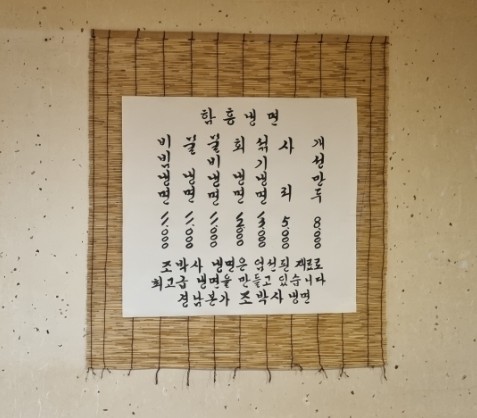 함흥냉면
비빔냉면 11000
물냉면 11000
물비냉면 11000
회냉면
섞기냉면
사리 5000
개성만두 8000
조박사 냉면은 엄선된 재료로
최고급 냉면을 만들고 있습니다
경남본가 조박사냉면